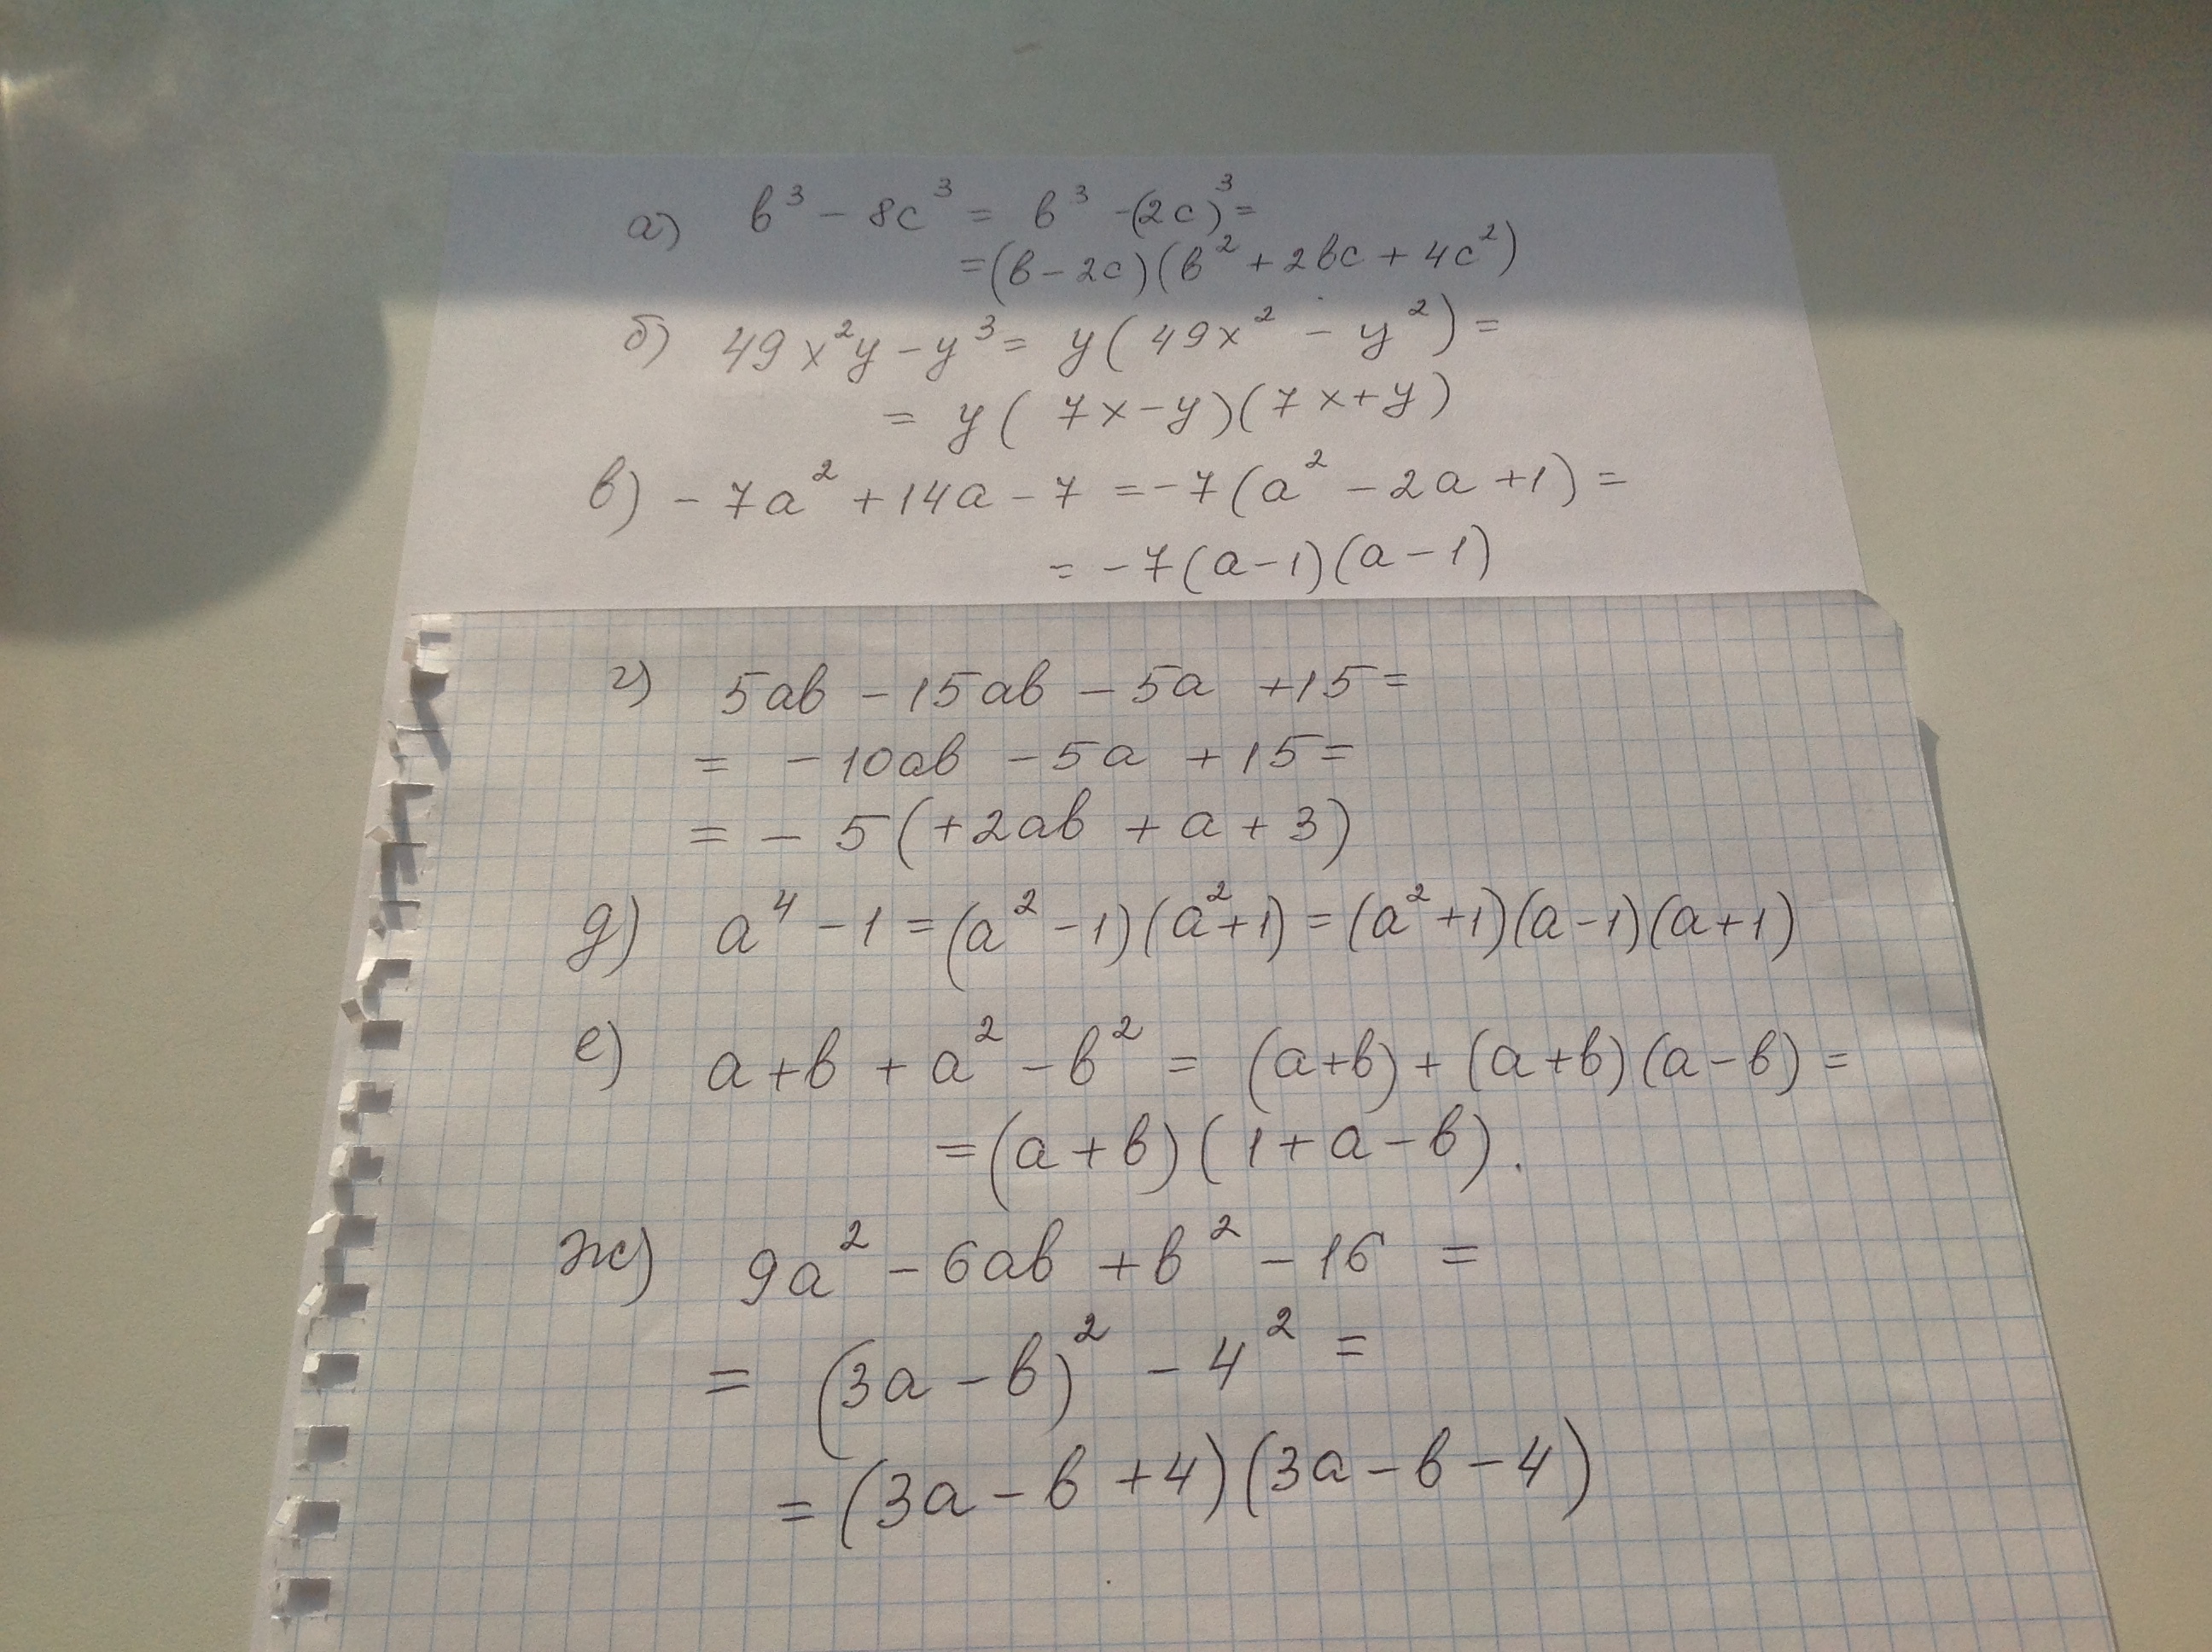 а) b³ - 8c³ = b³ - (2c)³ =
= (b - 2c)(b² + 2bc + 4c²)
б) 49x²y - y³ = y(49x² - y²) =
= y(7x - y)(7x + y)
в) - 7a² + 14a - 7 = -7(a² - 2a + 1) =
= -7(a - 1)(a - 1)
г) 5ab - 15ab - 5a + 15 =
= - 10ab - 5a + 15 =
= - 5(+2ab + a + 3)
д) a⁴ - 1 = (a² - 1)(a² + 1) = (a² + 1)(a - 1)(a + 1)
е) a + b + a² - b² = (a + b) + (a + b)(a - b) =
= (a + b)(1 + a - b).
ж) 9a² - 6ab + b² - 16 =
= (3a - b)² - 4² =
= (3a - b + 4)(3a - b - 4)